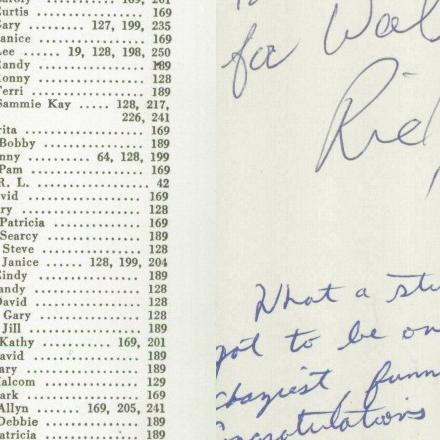 169, 201
urtis ................ 169
ary ........ 127, 199, 235
anice ................ 169
ee .... 19, 128, 198, 250
andy ................ 189
onny ................ 128
erri ................ 189
Sammie Kay ..... 128, 217,
226, 241
rita ................ 169
Bobby ................ 189
nny ........ 64, 128, 199
Pam ................ 169
R. L. ................ 42
vid ................ 169
ry ................ 128
Patricia ................ 169
Searcy ................ 189
Steve ................ 128
Janice ..... 128, 199, 204
indy ................ 189
andy ................ 128
avid ................ 128
Gary ................ 128
Jill ................ 189
Kathy ........... 169, 201
avid ................ 189
ary ................ 189
alcom ................ 129
ark ................ 169
Allyn ...... 169, 205, 241
Debbie ................ 189
atricia ................ 189
for Wal
What a stu
got to be on
craziest funn
ongratulations